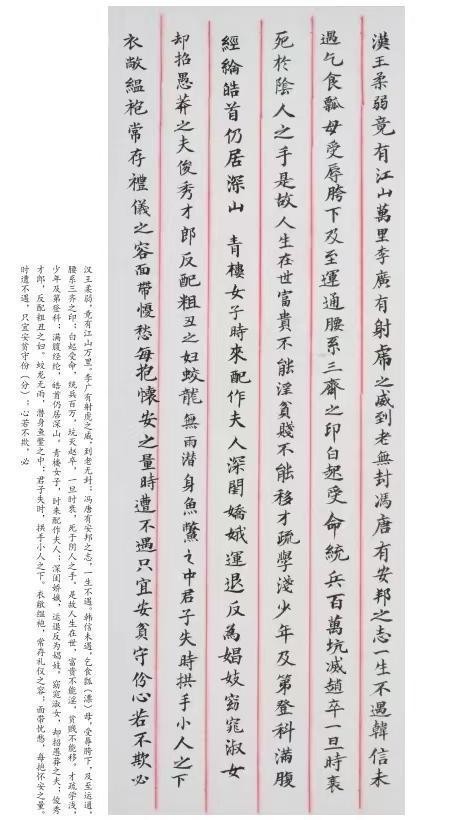 漢王柔弱竟有江山萬里李廣有射虎之威到老無封馮唐有安邦之志一生不遇韓信未
遇乞食瓢母受辱胯下及至運通腰系三齊之印白起受命統兵百萬坑滅趙卒一旦時衰
死於陰人之手是故人生在世富貴不能淫貧賤不能移才疏學淺少年及第登科滿腹
經綸皓首仍居深山 青樓女子時來配作夫人深閨嬌娥運退反為娼妓窈窕淑女
却招愚莽之夫俊秀才郎反配粗丑之妇蛟龍無雨潜身魚鱉之中君子失時拱手小人之下
衣敝縕袍常存禮儀之容面帶憂愁每抱懷安之量時遭不遇只宜安貧守份心若不欺必
汉王柔弱,竟有江山万里。李广有射虎之威,到老无封;冯唐有安邦之志,一生不遇。韩信未遇,乞食瓢(漂)母,受辱胯下,及至运通,
腰系三齐之印;白起受命,统兵百万,坑灭赵卒,一旦时衰,死于阴人之手,是故人生在世,富贵不能淫,贫贱不能移,才疏学浅,
少年及第登科;满腹经纶,皓首仍居深山。青楼女子,时来配作夫人;深闺娇娥,运退反为娼妓,窈窕淑女,却招愚莽之夫;俊秀
才郎,反配粗丑之妇。蛟龙无雨,潜身鱼鳖之中;君子失时,拱手小人之下。衣敝缊袍,常存礼仪之容;面带忧愁,每抱怀安之量。
时遭不遇,只宜安贫守份(分);心若不欺,必